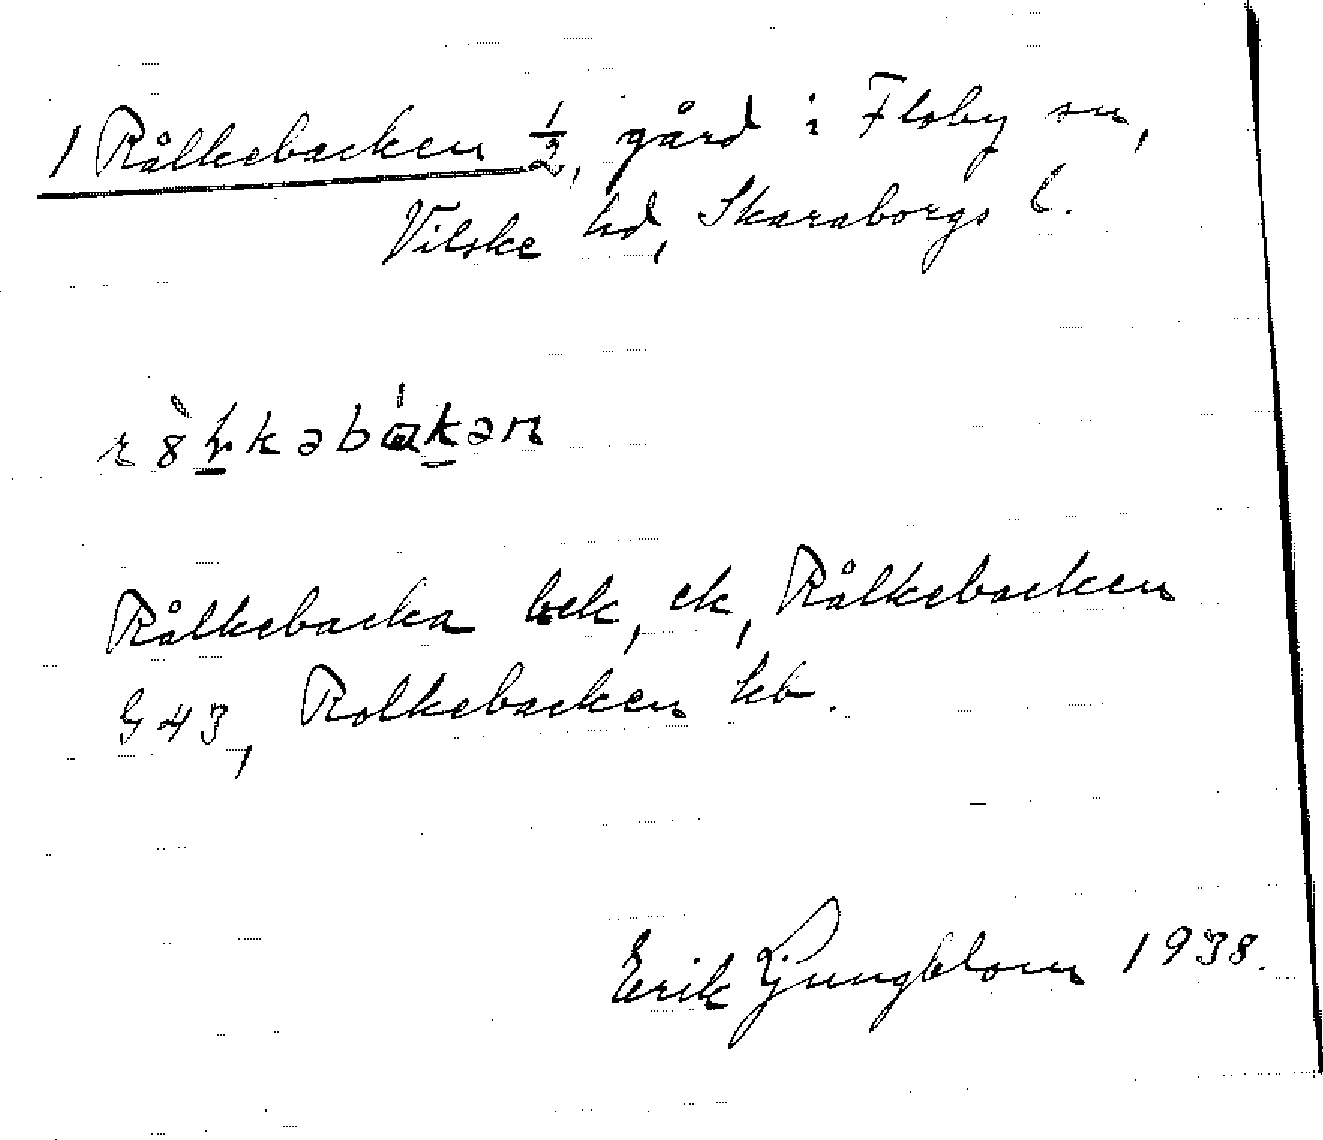 1 Rålkebacken 1/2, gård i Floby sn,
Vilske hd, Skaraborgs l.
Rålkebacka bek, ek, Rålkebacken
G 43, Rolkebacken kb.
Erik Ljungblom 1938.